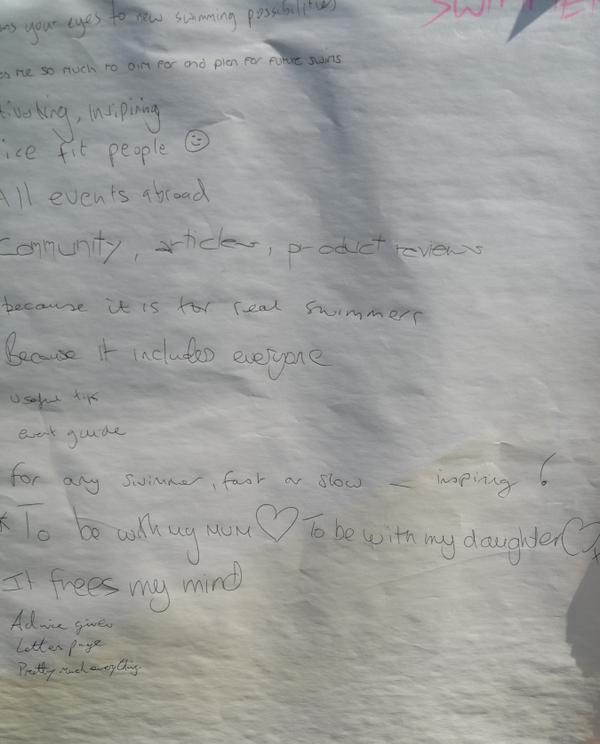 ns your eyes to new swimming possibilities
SWIMMER
es me so much to aim for and plan for future swims
tivating, insipiring
ice fit people
All events abroad
Community, articles, product reviews
because it is for real swimmers
Because it includes everyone
useful tips
event guide
for any swimmer, fast or slow — inspiring !
* To be with my MUM ♡ To be with my daughter ♡ x
It frees my mind
Advice given
Letters page
Pretty much everything.